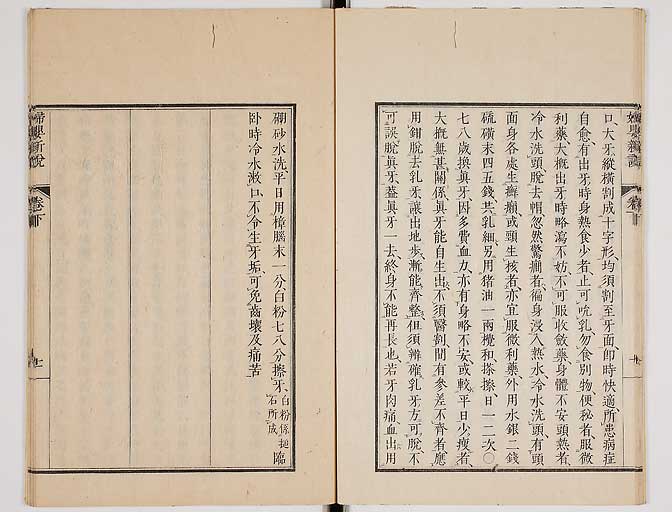 口、大牙縱橫割成十字形、均須割至牙面、卽時快適、所患病症
自愈、有出牙時身熱食少者、止可吮乳、勿食別物、便秘者、服微
利藥、大槪出牙時略瀉不妨、不可服收斂藥、身體不安頭熱者、
冷水洗頭、脫去帽、忽然驚癎者、徧身浸入熱水、冷水洗頭、有頭
面身各處生癬癩、或頸生核者、亦宜服微利藥、外用水銀二錢
硫磺末四五錢、共乳細、另用猪油一兩攪和、搽擦日一二次○
七八歲換眞牙、因多費血力、亦有身略不安、或較平日少瘦者、
大槪無甚關係、眞牙能自生出、不須醫割、間有參差不齊者、應
用鉗脫去乳牙、讓出地步、漸能齊整、但須辨確乳牙方可脫、不
可誤脫眞牙、蓋眞牙一去、終身不能再長也、若牙肉痛、血出、用
硼砂水洗、平日用樟腦末一分、白粉七八分擦牙、白粉係
石所成臨
卧時冷水漱口、不令生牙垢、可免齒壞及痛苦
婦嬰新說
卷下